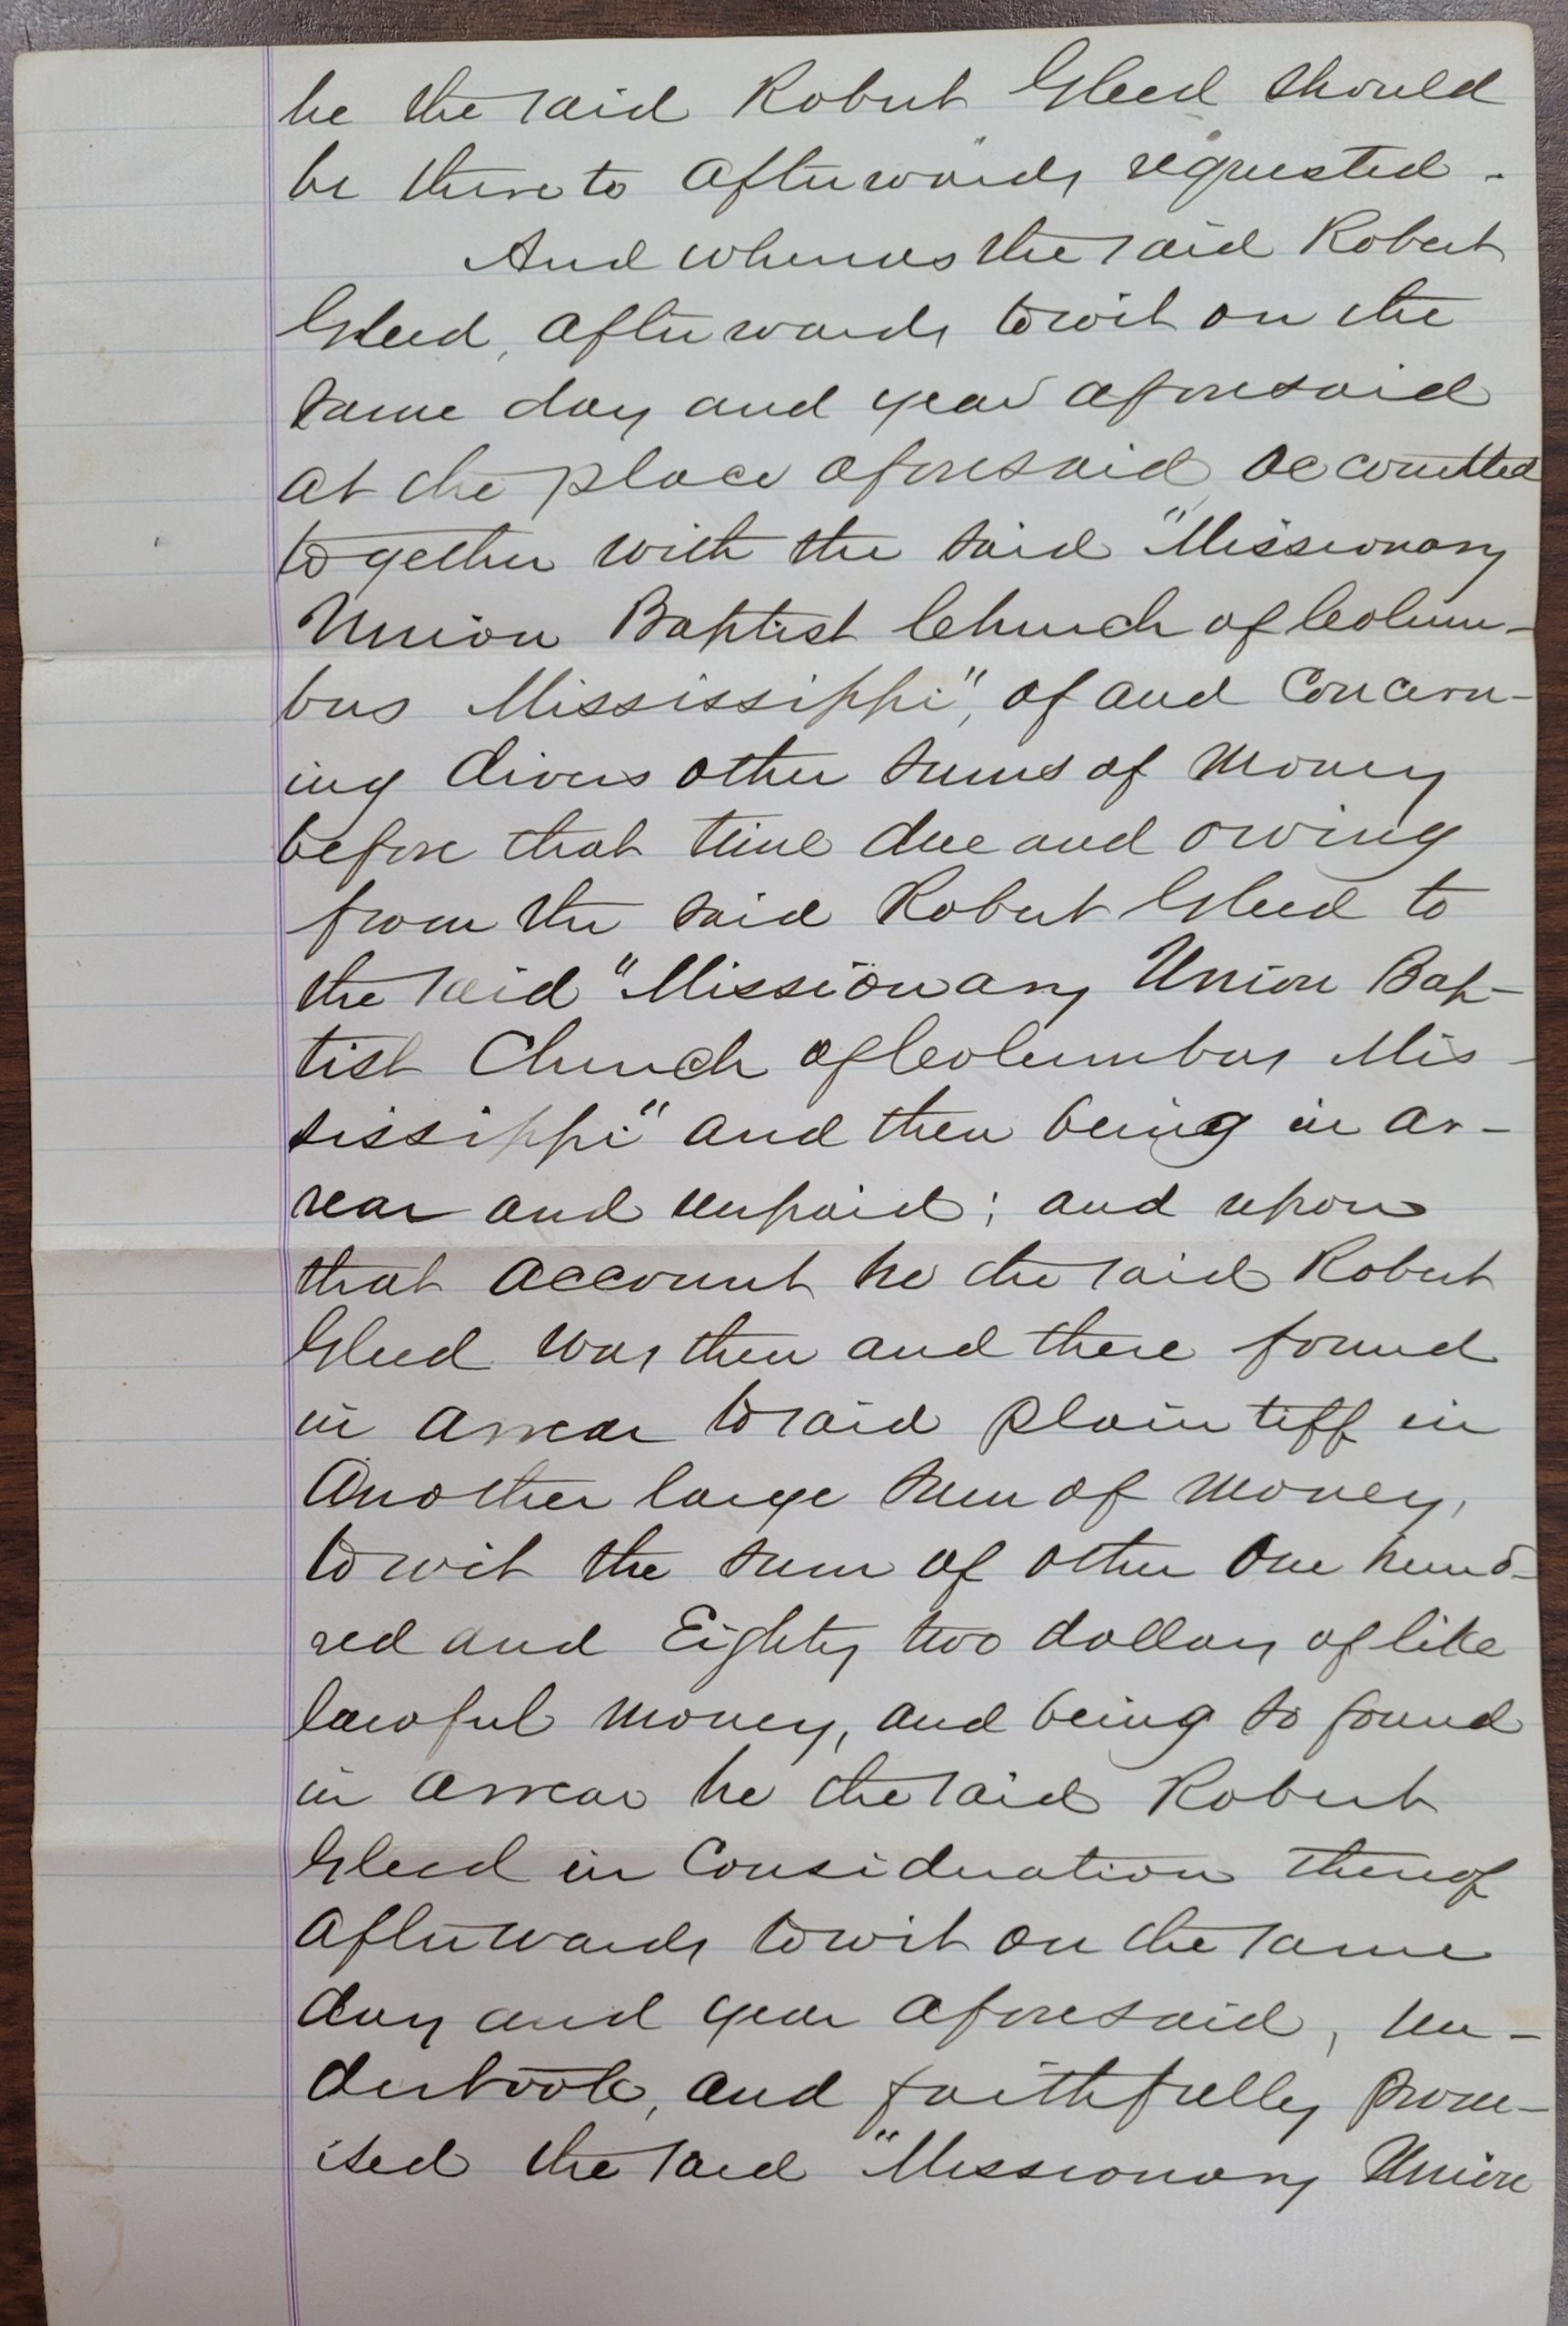 he the said Robert Gleed should
be thereto afterwards requested.
And whereas the said Robert
Gleed, afterwards towit on the
same day and year aforesaid
at the place aforesaid, accountted
together with the said "Missionary
Union Baptist Church of Colum-
bus Mississippi", of and concern-
ing divers other sums of money
before that time due and owing
from the said Robert Gleed to
the said "Missionary Union Bap-
tist Church of Columbus Mis-
sissippi" and then being in ar-
rear and unpaid; and upon
that account he the said Robert
Gleed was then and there found
in arrear to said plaintiff in
another large sum of money,
towit the sum of other one hund-
red and Eighty two dollars of like
lawful money, and being so found
in arrear he the said Robert
Gleed in consideration thereof
afterwards towit on the same
day and year aforesaid, un-
dertook, and faithfully prom-
ised the said "Missionary Union